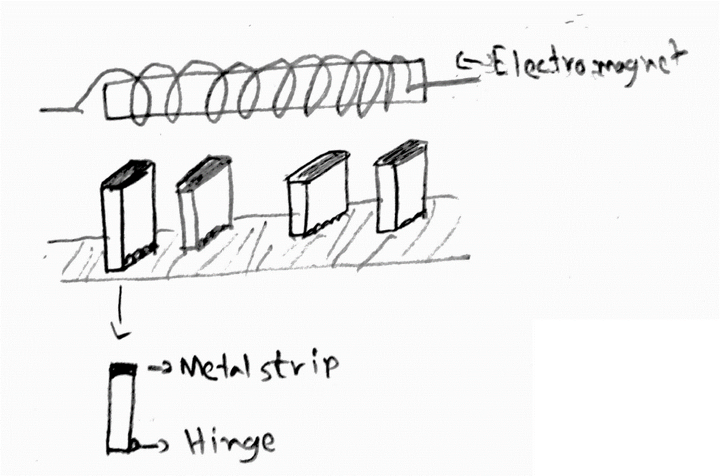 Electromagnet
Metal strip
Hinge